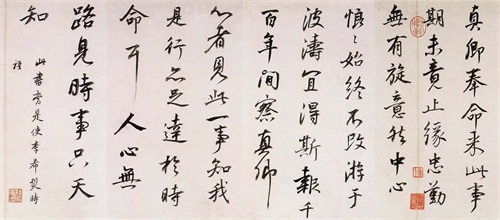 真卿奉命來此事
期未竟止緣忠勤
無有旋意然中心
恨〻始終不改游于
波濤宜得斯報千
百年間察真卿
心者見此一事知我
是行亦足達於時
命耳 人心無
路見時事只天
知
此書旁是使李希烈時